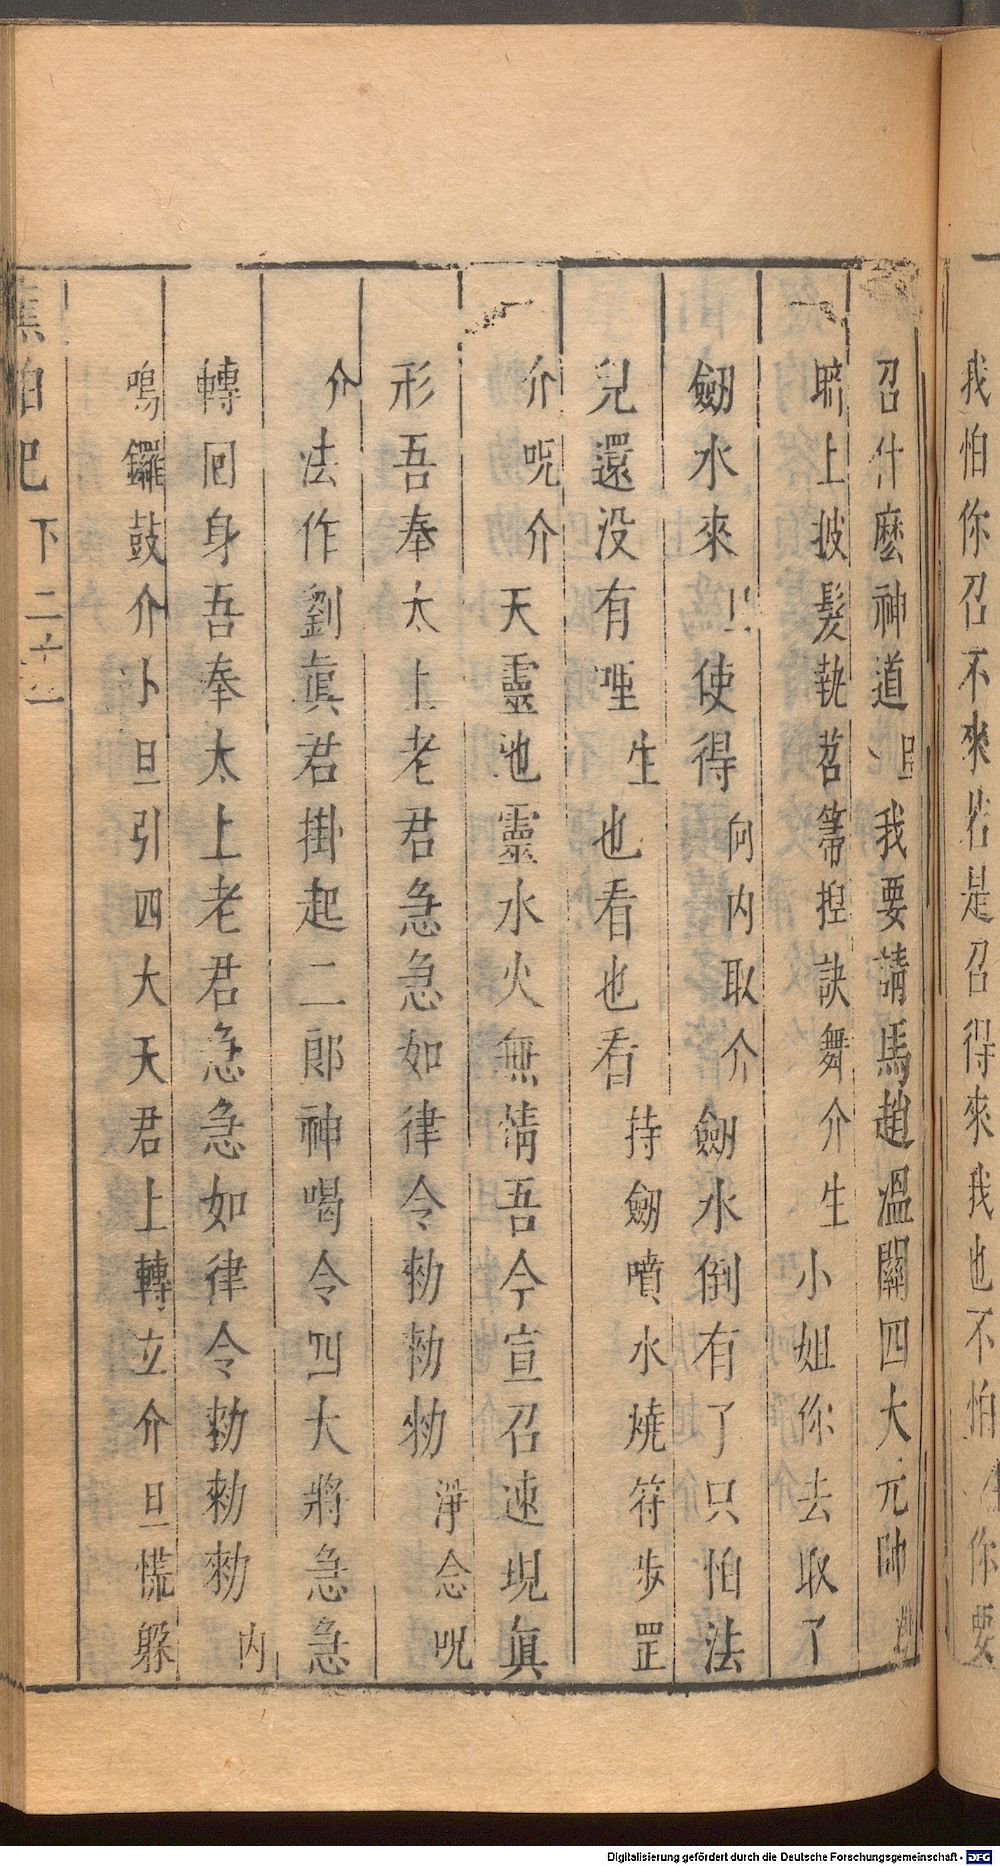 我怕你召不來若是召得來我也不怕 你要
召什麽神道 旦 我要請馬趙溫關四大元帥
暗上披髮執苕箒揑訣舞介生小姐你去取了
劒水來 旦 使得 向内取介 劒水倒有了只怕法
兒還没有哩 生 也看也看 持劒噴水燒符步罡
介呪介 天靈地靈水火無情吾今宣召速現眞
形吾奉太上老君急急如律令勑勑勑 淨念呪
介 法作劉眞君掛起二郎神喝令四大將急急
轉囘身吾奉太上老君急急如律令勑勑勑 内
鳴鑼鼓介小旦引四大天君上轉立介旦慌躱
蕉帕記 下
Digitalisierung gefördert durch die Deutsche Forschungsgemeinschaft - DFG